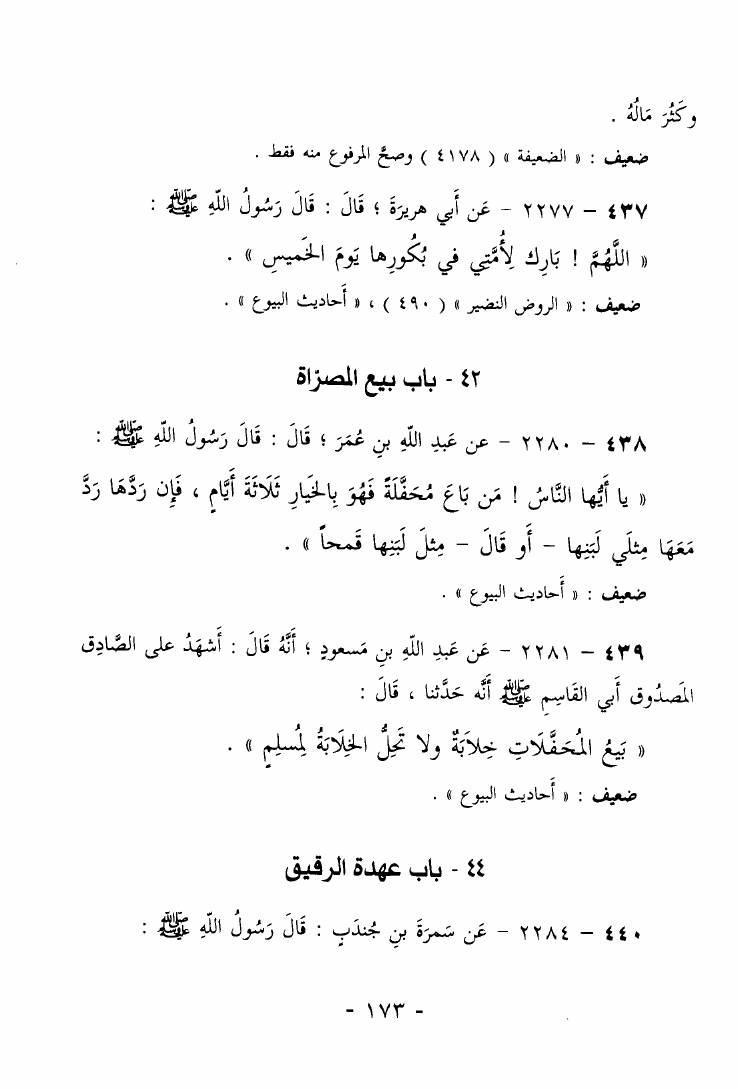 وكَثُرَ مَالُهُ .
ضعيف : « الضعيفة » ( ٤١٧٨ ) وصحَّ المرفوع منه فقط .
٤٣٧ – ٢٢٧٧ – عَن أَبي هريرَةَ ؛ قَالَ : قَالَ رَسُولُ اللّهِ ﷺ :
« اللَّهُمَّ ! بَارِك لِأُمَّتِي في بُكُورِها يَومَ الخَميسِ » .
ضعيف : « الروض النضير » ( ٤٩٠ ) ، « أَحاديث البيوع » .
٤٢ - باب بيع المصرّاة
٤٣٨ – ٢٢٨٠ – عن عَبدِ اللّهِ بنِ عُمَرَ ؛ قَالَ : قَالَ رَسُولُ اللّهِ ﷺ :
« يا أَيُّها النَّاسُ ! مَن بَاعَ مُحَفَّلَةً فَهُوَ بِالخَيارِ ثَلَاثَةَ أَيَّامٍ ، فَإِن رَدَّهَا رَدَّ
مَعَهَا مِثلَي لَبَنِها – أَو قَالَ – مِثلَ لَبَنِها قَمحاً » .
ضعيف : « أَحاديث البيوع » .
٤٣٩ – ٢٢٨١ – عَن عَبدِ اللّهِ بنِ مَسعودٍ ؛ أَنَّهُ قَالَ : أَشهَدُ على الصَّادِق
المَصدُوق أَبي القَاسِمِ ﷺ أَنَّه حَدَّثنا ، قَالَ :
« بَيعُ المُحَفَّلَاتِ خِلَابَةٌ ولا تَحِلُّ الخِلَابَةُ لِمُسلِمٍ » .
ضعيف : « أَحاديث البيوع » .
٤٤ - باب عهدة الرقيق
٤٤٠ – ٢٢٨٤ – عَن سَمرَةَ بنِ جُندَبٍ : قَالَ رَسُولُ اللّهِ ﷺ :
- ١٧٣ -